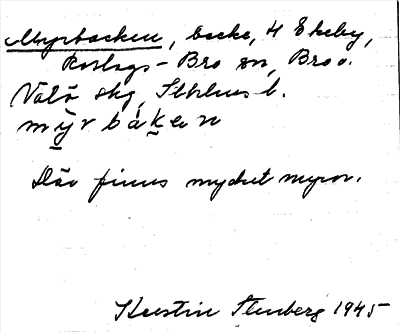 Myrbacken, backe, 4 Ekeby,
Roslags-Bro sn, Bro o.
Väto skg, Sthlms l.
mỳrbakɐn
Där finns mycket myror.
Kerstin Stenberg 1945